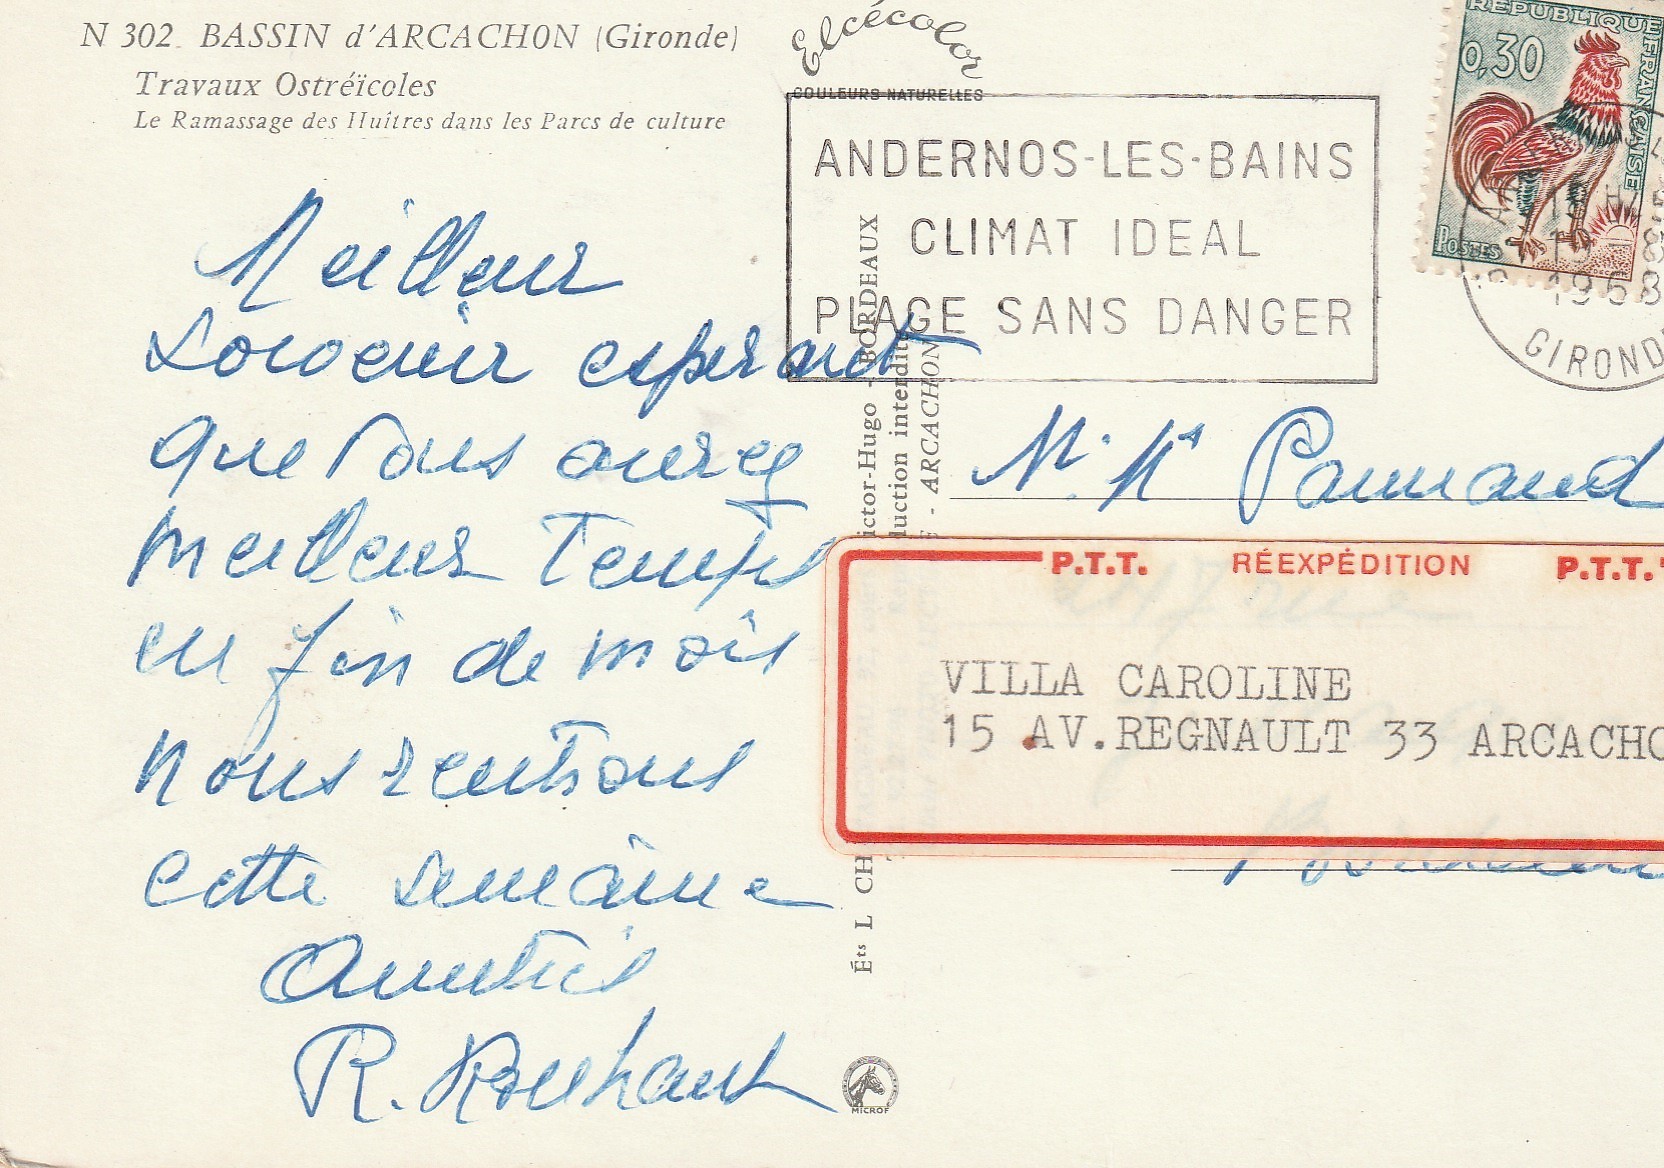 N 302 BASSIN d'ARCACHON (Gironde)
Travaux Ostréïcoles
Le Ramassage des Huîtres dans les Parcs de culture
Elcécolor
COULEURS NATURELLES
ANDERNOS-LES-BAINS
CLIMAT IDEAL
PLAGE SANS DANGER
REPUBLIQUE FRANÇAISE
0,30
POSTES
1968
GIROND
Meilleur
Souvenir esperant
que vous aurez
meilleurs Temps
en fin de mois
nous rentrons
cette semaine
Amitiés
R.
M. Me
P.T.T. RÉEXPÉDITION P.T.T.
VILLA CAROLINE
15 AV.REGNAULT 33 ARCACHO
Éts L CH
ictor-Hugo - BORDEAUX
duction interdite
- ARCACHON
MICROF